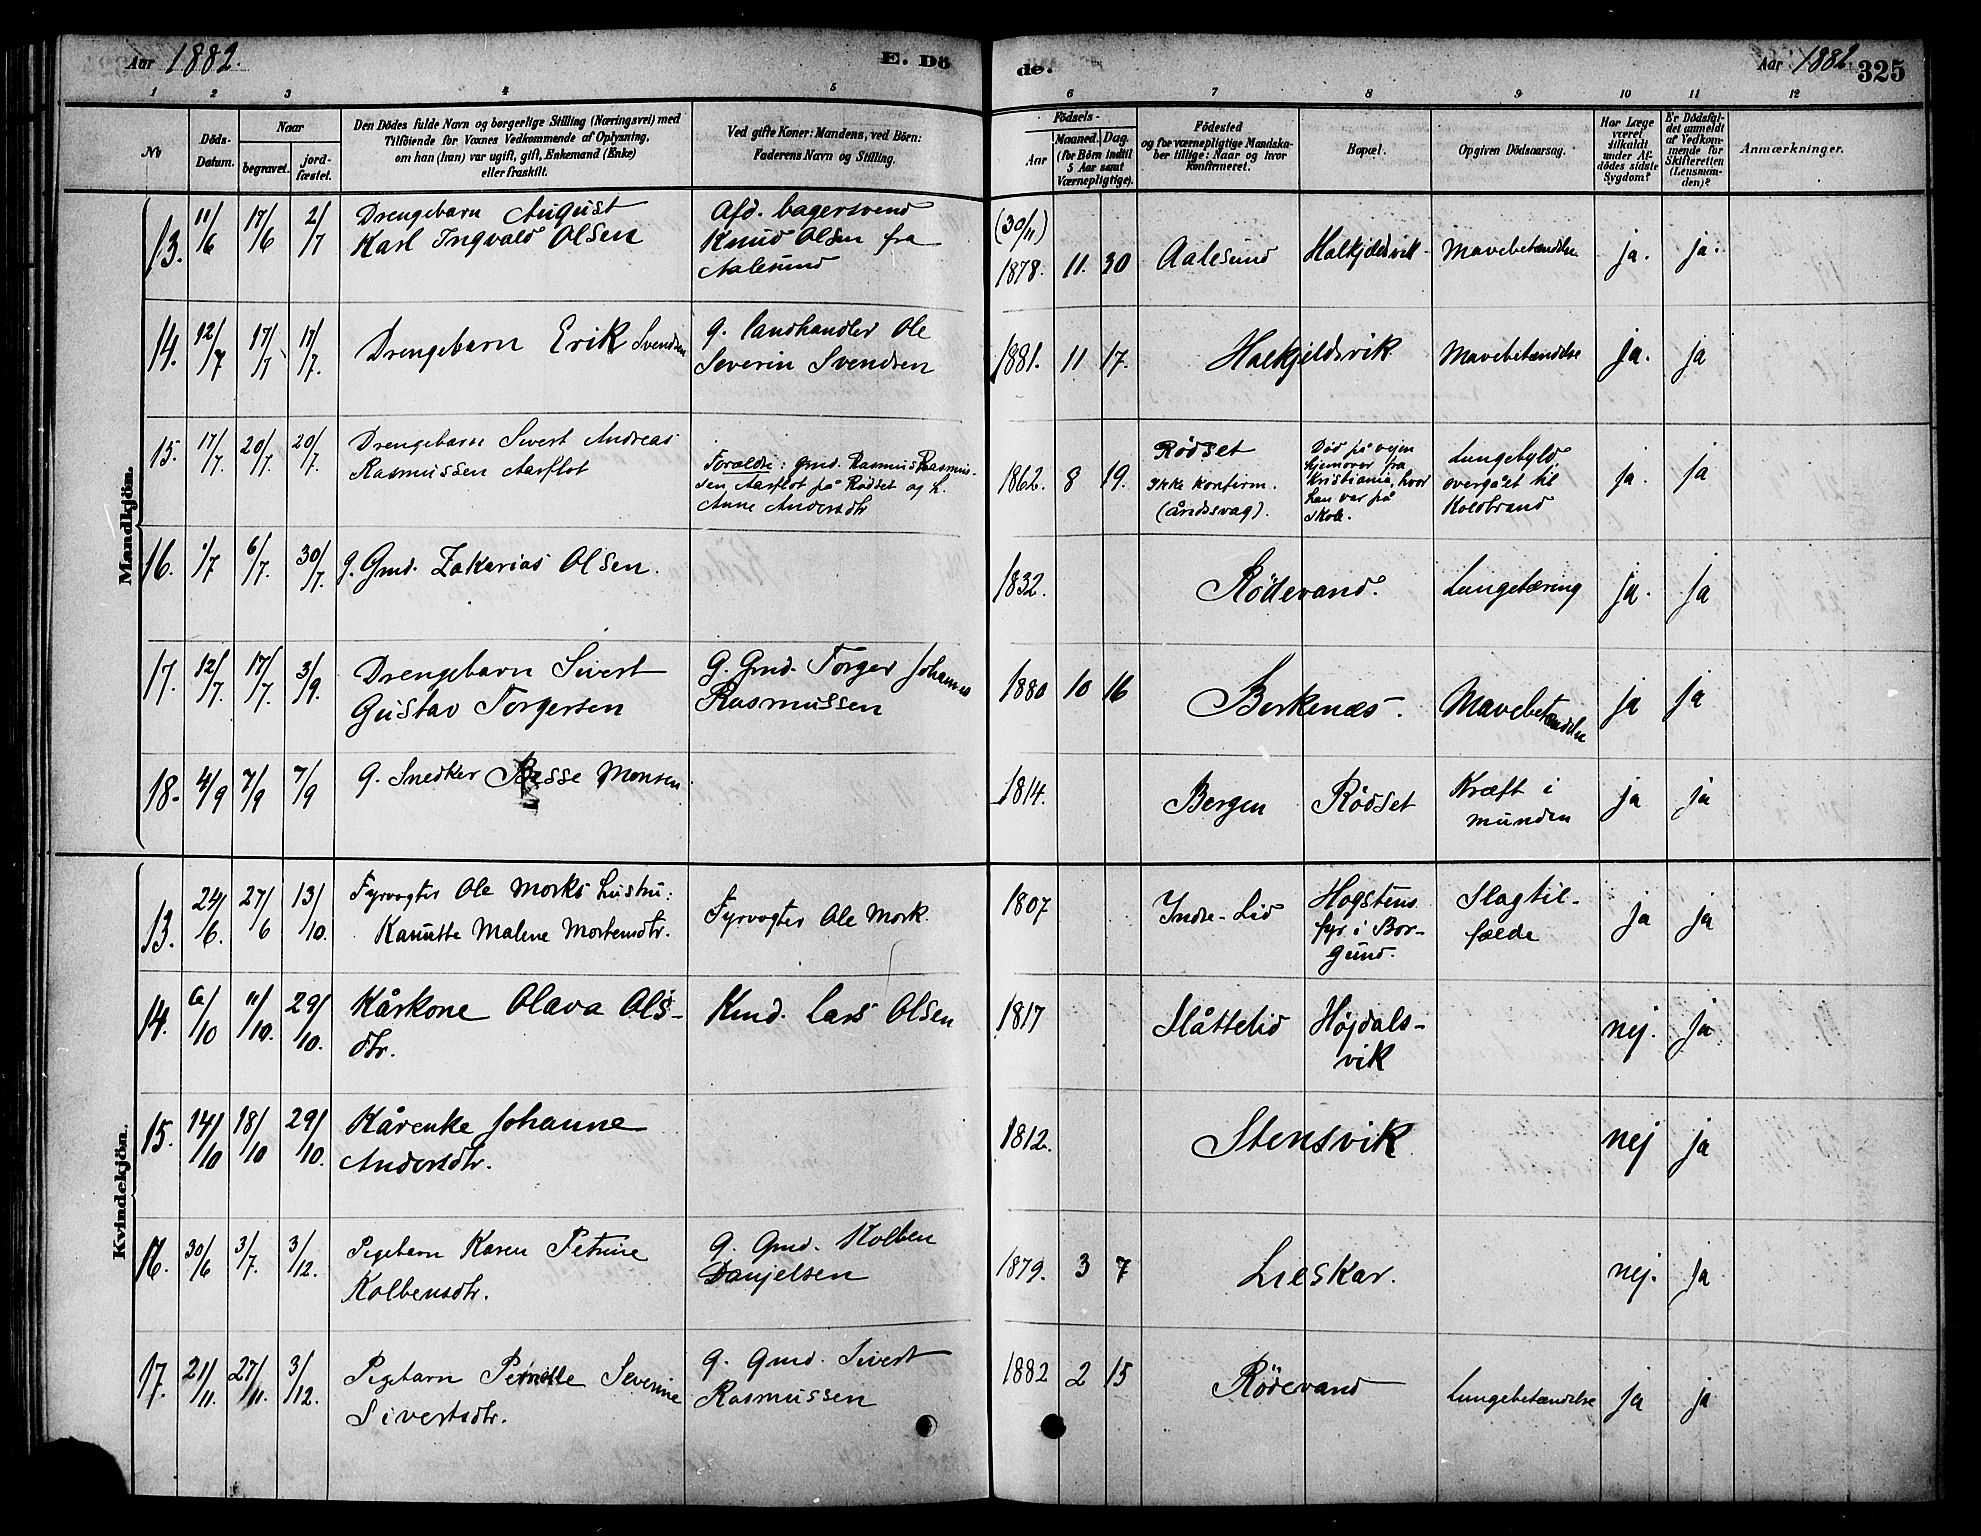 Aar 1882.
E. Dö
de.
Aar 1882. 325
1 2 3 4 5 6 7 8 9 10 11 12
No
Döds-
Datum.
Naar
begravet.
jord-
fæstet.
Den Dödes fulde Navn og borgerlige Stilling (Næringsvei) med
Tilföiende for Voxnes Vedkommende af Oplysning,
om han (hun) var ugift, gift, Enkemand (Enke)
eller fraskilt.
Ved gifte Koner: Mandens, ved Börn:
Faderens Navn og Stilling.
Födsels-
Aar
Maaned. Dag.
(for Börn indtil
5 Aar samt
Værnepligtige).
Födested
og for værnepligtige Mandska-
ber tillige: Naar og hvor
Konfirmeret.
Bopæl.
Opgiven Dödsaarsag.
Har Læge
været
tilkaldt
under Af-
dödes sidste
Sygdom?
Er Dödsfal-
det anmeldt
af Vedkom-
mende for
Skifteretten
(Lensman-
den)?
Anmærkninger.
Mandkjön.
13. 11/6 17/6 2/7
Drengebarn August
Karl Ingvald Olsen
Afd. bagersvend
Knud Olsen fra
Aalesund
(30/11)
1878. 11. 30 Aalesund Halkjeldsvik Mavebetændelse ja. ja.
14. 12/7 17/7 17/7.
Drengebarn Erik Svendsen
g. landhandler Ole
Severin Svendsen
1881. 11 17. Halkjeldsvik Mavebetændelse ja. ja
15. 17/7. 20/7. 20/7.
Drengebarn Sivert Andreas
Rasmussen Aarflot
Forældre: gmd. Rasmus Rasmus-
sen Aarflot på Rødset og h.
Anne Andersdtr
1862. 8 19.
Rødset
Ikke konfirm.
(åndssvag).
Død på vejen
hjemover fra
Kristiania, hvor
han var på
skole.
Lungebyld,
overgåët til
Koldbrand
ja. ja
16. 1/7 6/7. 30/7. g. Gmd. Zakarias Olsen.
1832. Rødevand. Lungetæring ja. ja
17. 12/7. 17/7. 3/9.
Drengebarn Sivert
Gustav Torgersen
G. Gmd. Torger Johannes
Rasmussen
1880 10 16 Berkenæs. Mavebetændelse ja ja
18. 4/9 7/9 7/9 g. Snedker Besse Monsen
1814. Bergen Rødset
Kræft i
munden
ja ja
Kvindekjön.
13. 24/6. 27/6 13/10.
Fyrvogter Ole Morks hustru:
Kanutte Malene Mortensdtr.
Fyrvogter Ole Mork.
1807 Indre-Lid
Høgstens
fyr i Bor-
gund.
Slagtil-
fælde
ja ja
14. 6/10 11/10. 29/10.
Kårkone Olava Ols-
dtr.
Kmd. Lars Olsen
1817 Slåttelid
Højdals-
vik
nej. ja
15. 14/10 18/10 29/10.
Kårenke Johanne
Andersdtr.
1812. Stensvik nej ja
16. 30/6 3/7. 3/12.
Pigebarn Karen Petrine
Kolbensdtr.
g. Gmd. Kolben
Danjelsen
1879. 3 7 Lieskar. nej. ja
17. 21/11. 27/11. 3/12.
Pigebarn Pernille Severine
Sivertsdtr.
g. Gmd. Sivert
Rasmussen
1882 2 15 Rødevand Lungebetændelse ja ja